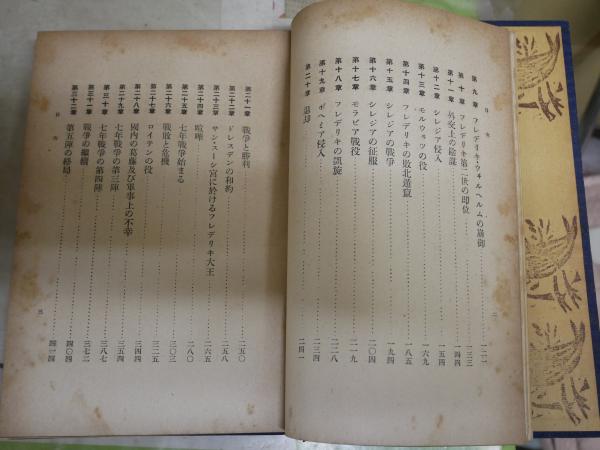 目次
第九章 フレデリキ・ウィルヘルムの崩御 一二一
第十章 フレデリキ第二世の即位 一三三
第十一章 外交上の陰謀 一四四
第十二章 シレジア侵入 一五四
第十三章 モルウィッツの役 一六九
第十四章 フレデリキの敗北遁竄 一八五
第十五章 シレジアの戦争 一九四
第十六章 シレジアの征服 二〇四
第十七章 モラビア戦役 二一九
第十八章 フレデリキの凱旋 二二七
第十九章 ボヘミア侵入 二三四
第二十章 退却 二四一
二
第二十一章 戦争と勝利 二五〇
第二十二章 ドレスデンの和約 二五八
第二十三章 サン・スーシ宮に於けるフレデリキ大王 二六五
第二十四章 喧嘩 二八〇
第二十五章 七年戦争始まる
第二十六章 戦敗と危機 三〇三
第二十七章 ロイテンの役 三二五
第二十八章 国内の葛藤及び軍事上の不幸 三四四
第二十九章 七年戦争の第三陣 三五四
第三十章 七年戦争の第四陣 三八七
第三十一章 戦争の継続 三七二
第三十二章 第五陣の終局 四〇四
四一四
目次
三